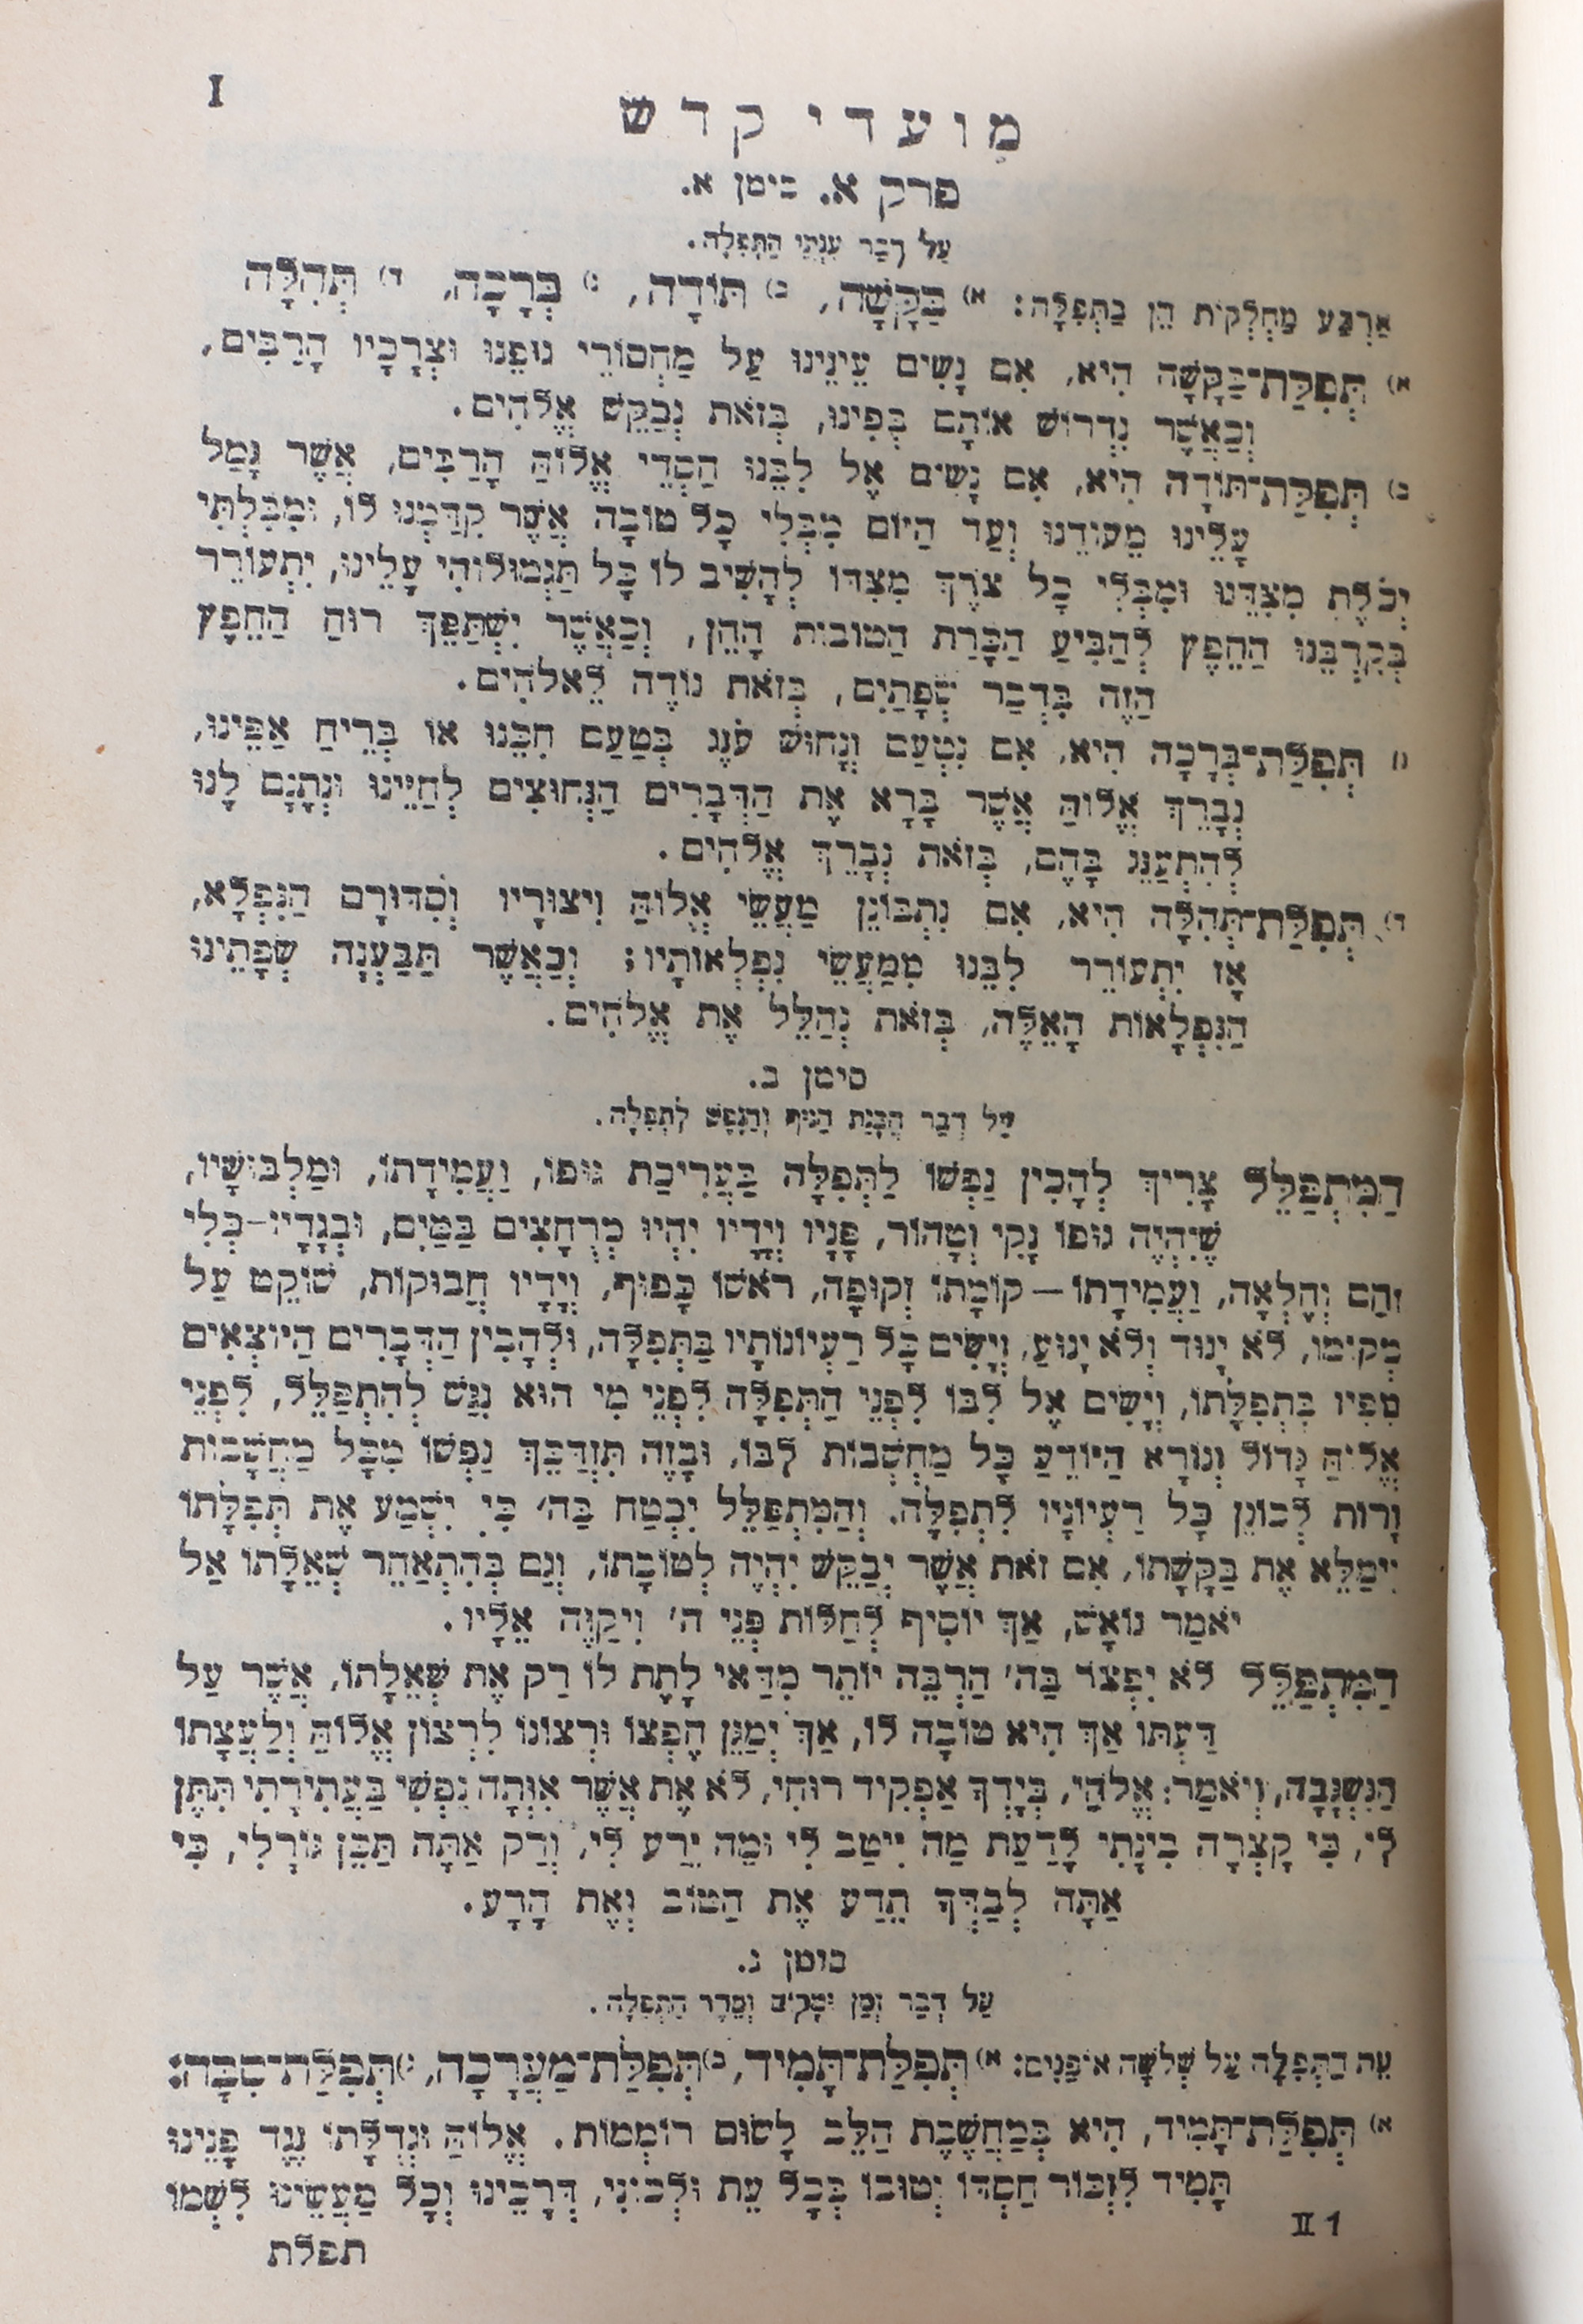 I
מועדי קדש
פרק א. סימן א.
על דְבַר עִנְיְנֵי הַתְּפִלָּה.
אַרְבַּע מַחְלְקוֹת הֵן בַּתְּפִלָּה: א) בַּקָּשָׁה, ב) תּוֹדָה, ג) בְּרָכָה, ד) תְּהִלָּה
א) תְּפִלַּת־בַּקָּשָׁה הִיא, אִם נָשִׂים עֵינֵינוּ עַל מַחְסוֹרֵי גוּפֵנוּ וּצְרָכָיו הָרַבִּים,
וְכַאֲשֶׁר נִדְרוֹשׁ אוֹתָם בְּפִינוּ, בְּזֹאת נְבַקֵּשׁ אֱלֹהִים.
ב) תְּפִלַּת־תּוֹדָה הִיא, אִם נָשִׂים אֶל לִבֵּנוּ חַסְדֵי אֱלוֹהַּ הָרַבִּים, אֲשֶׁר גָּמַל
עָלֵינוּ מֵעוֹדֵנוּ וְעַד הַיּוֹם מִבְּלִי כָּל טוֹבָה אֲשֶׁר קִדַּמְנוּ לוֹ, וּמִבִּלְתִּי
יְכֹלֶת מִצִּדֵּנוּ וּמִבְּלִי כָּל צֹרֶךְ מִצִּדּוֹ לְהָשִׁיב לוֹ כָּל תַּגְמוּלוֹהִי עָלֵינוּ, יִתְעוֹרֵר
בְּקִרְבֵּנוּ הַחֵפֶץ לְהַבִּיעַ הַכָּרַת הַטּוֹבוֹת הָהֵן, וְכַאֲשֶׁר יִשְׁתַּפֵּךְ רוּחַ הַחֵפֶץ
הַזֶּה בִּדְבַר שְׂפָתַיִם, בְּזֹאת נוֹדֶה לֵאלֹהִים.
ג) תְּפִלַּת־בְּרָכָה הִיא, אִם נִטְעַם וְנָחוּשׁ עֹנֶג בְּטַעַם חִכֵּנוּ אוֹ בְּרֵיחַ אַפֵּינוּ,
נְבָרֵךְ אֱלוֹהַּ אֲשֶׁר בָּרָא אֶת הַדְּבָרִים הַנְּחוּצִים לְחַיֵּינוּ וּנְתָנָם לָנוּ
לְהִתְעַנֵּג בָּהֶם, בְּזֹאת נְבָרֵךְ אֱלֹהִים.
ד) תְּפִלַּת־תְּהִלָּה הִיא, אִם נִתְבּוֹנֵן מַעֲשֵׂי אֱלוֹהַּ וִיצוּרָיו וְסִדּוּרָם הַנִּפְלָא,
אָז יִתְעוֹרֵר לִבֵּנוּ מִמַּעֲשֵׂי נִפְלְאוֹתָיו; וְכַאֲשֶׁר תַּבַּעְנָה שְׂפָתֵינוּ
הַנִּפְלָאוֹת הָאֵלֶּה, בְּזֹאת נְהַלֵּל אֶת אֱלֹהִים.
סימן ב.
עַל דְבַר הֲכָנַת הַגּוּף וְהַנֶּפֶשׁ לִתְפִלָּה.
הַמִּתְפַּלֵּל צָרִיךְ לְהָכִין נַפְשׁוֹ לַתְּפִלָּה בַּעֲרִיכַת גּוּפוֹ, וַעֲמִידָתוֹ, וּמַלְבּוּשָׁיו,
שֶׁיִּהְיֶה גוּפוֹ נָקִי וְטָהוֹר, פָּנָיו וְיָדָיו יִהְיוּ מְרֻחָצִים בַּמַּיִם, וּבְגָדָיו–בְּלִי
זֹהַם וְחֶלְאָה, וַעֲמִידָתוֹ — קוֹמָתוֹ זְקוּפָה, רֹאשׁוֹ כָּפוּף, וְיָדָיו חֲבוּקוֹת, שׁוֹקֵט עַל
מְקוֹמוֹ, לֹא יָנוּד וְלֹא יָנוּעַ, וְיָשִׂים כָּל רַעְיוֹנוֹתָיו בַּתְּפִלָּה, וּלְהָבִין הַדְּבָרִים הַיּוֹצְאִים
מִפִּיו בִּתְפִלָּתוֹ, וְיָשִׂים אֶל לִבּוֹ לִפְנֵי הַתְּפִלָּה לִפְנֵי מִי הוּא נִגַּשׁ לְהִתְפַּלֵּל, לִפְנֵי
אֱלוֹהַּ גָּדוֹל וְנוֹרָא הַיּוֹדֵעַ כָּל מַחְשְׁבוֹת לִבּוֹ, וּבָזֶה תִּזְדַּכֵּךְ נַפְשׁוֹ מִכָּל מַחֲשָׁבוֹת
זָרוֹת לְכוֹנֵן כָּל רַעְיוֹנָיו לִתְפִלָּה. וְהַמִּתְפַּלֵּל יִבְטַח בַּה׳ כִּי יִשְׁמַע אֶת תְּפִלָּתוֹ
וִימַלֵּא אֶת בַּקָּשָׁתוֹ, אִם זֹאת אֲשֶׁר יְבַקֵּשׁ יִהְיֶה לְטוֹבָתוֹ, וְגַם בְּהִתְאַחֵר שְׁאֵלָתוֹ אַל
יֹאמַר נוֹאָשׁ, אַךְ יוֹסִיף לְחַלּוֹת פְּנֵי ה׳ וִיקַוֶּה אֵלָיו.
הַמִּתְפַּלֵּל לֹא יִפְצוֹר בַּה׳ הַרְבֵּה יוֹתֵר מִדַּאי לָתֶת לוֹ רַק אֶת שְׁאֵלָתוֹ, אֲשֶׁר עַל
דַּעְתּוֹ אַךְ הִיא טוֹבָה לוֹ, אַךְ יְמַגֵּן חֶפְצוֹ וּרְצוֹנוֹ לִרְצוֹן אֱלוֹהַּ וְלַעֲצָתוֹ
הַנִּשְׂגָּבָה, וְיֹאמַר: אֱלֹהַי, בְּיָדְךָ אַפְקִיד רוּחִי, לֹא אֶת אֲשֶׁר אִוְּתָה נַפְשִׁי בַּעֲתִירָתִי תִּתֶּן
לִי, כִּי קָצְרָה בִינָתִי לָדַעַת מַה יִּיטַב לִי וּמַה יֵּרַע לִי, וְרַק אַתָּה תַּכֵּן גּוֹרָלִי, כִּי
אַתָּה לְבַדְּךָ תֵדַע אֶת הַטּוֹב וְאֶת הָרָע.
סימן ג.
עַל דְבַר זְמַן וּמָקוֹם וְסֵדֶר הַתְּפִלָּה.
עֵת הַתְּפִלָּה עַל שְׁלֹשָׁה אוֹפַנִּים: א) תְּפִלַּת־תָּמִיד, ב) תְּפִלַּת־מַעֲרָכָה, ג) תְּפִלַּת־סִבָּה:
א) תְּפִלַּת־תָּמִיד, הִיא בְּמַחֲשֶׁבֶת הַלֵּב לָשׂוּם רוֹמְמוֹת. אֱלוֹהַּ וּגְדֻלָּתוֹ נֶגֶד פָּנֵינוּ
תָּמִיד לִזְכּוֹר חַסְדּוֹ וְטוּבוֹ בְּכָל עֵת וּלְכַוֵּן, דְּרָכֵינוּ וְכָל מַעֲשֵׂינוּ לִשְׁמוֹ
II 1
תפלת